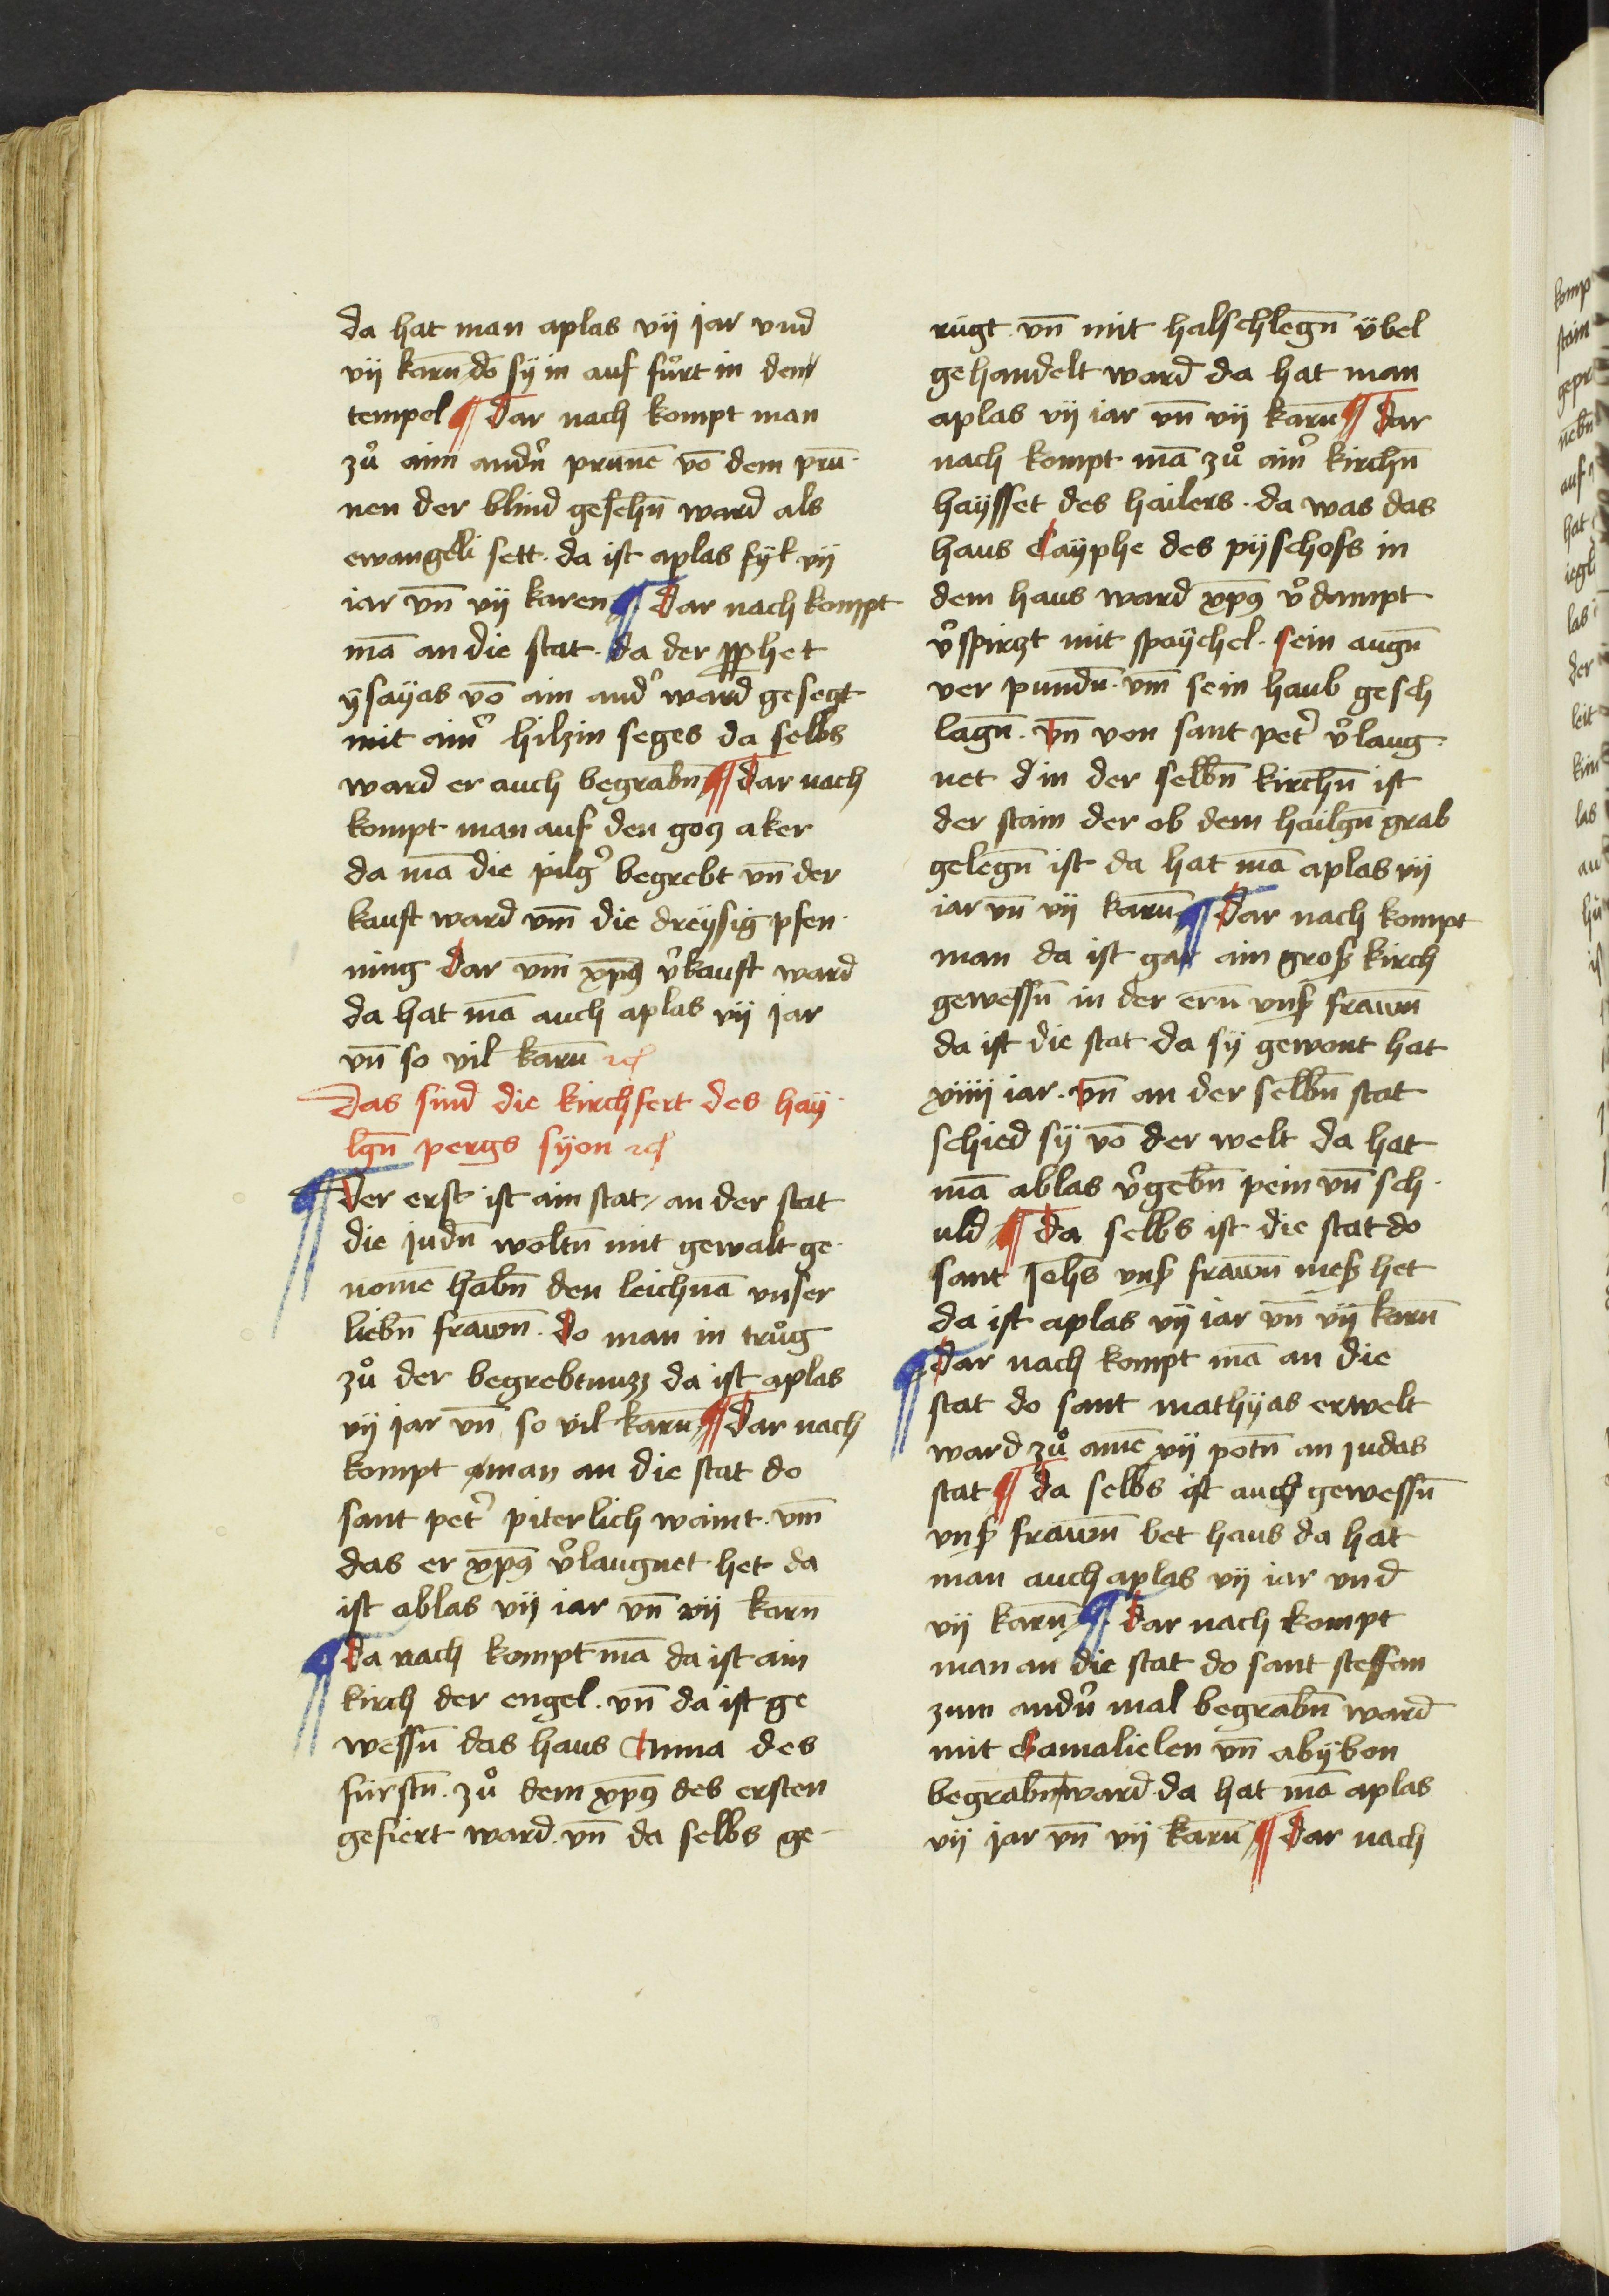 da hat man aplas vij jar vnd
vij karn̄ do sÿ in auf fůrt in dem
tempel ¶ Dar nach kompt man
zů aim andn̄ prunnē vō dem prū-
nen der blind gesehn̄ ward als
ewangeli sett · da ist aplas sÿl vij
iar vn̄ vij karen ¶ Dar nach kompt
mā an die stat · da der pphet
ÿsaÿas vō ain and' ward gesegt
mit aim' hilzin seges da selbs
ward er auch begrabn̄ ¶ Dar nach
kompt man auf den gocz aker
da mā die pilg' begrebt vn̄ der
kauft ward vm̄ die dreÿsig pfen-
ning Dar vm̄ xp̄s v'kauft ward
da hat mā auch aplas vij jar
vn̄ so vil karn̄ ⁊c̄
Das sind die kirchfert des haÿ-
lgn̄ pergs sÿon ⁊c̄
¶ Der erst ist ain stat / an der stat
die judn̄ woltn̄ mit gewalt ge-
nomē habn̄ den leichnā vnser
liebn̄ frawn̄ · Do man in trůg
zů der begrebtnuzz da ist aplas
vij jar vn̄ so vil karn̄ ¶ Dar nach
kompt man an die stat do
sant pet' piterlich waint · vm̄
das er xp̄s v'laugnet het da
ist ablas vij iar vn̄ vij karn̄
¶ Da nach kompt mā da ist ain
kirch der engel · vn̄ da ist ge
wessn̄ das haus Anna des
fürstn̄ · zů dem xp̄s des ersten
gefiert ward · vn̄ da selbs ge-
rügt · vn̄ mit halschlegn̄ übel
gehandelt ward da hat man
aplas vij iar vn̄ vij karn̄ ¶ Dar
nach kompt mā zů aim' kirchn̄
haÿsset des hailers · da was das
haus Caÿphe des pÿschofs in
dem haus ward xp̄s v'dampt
v'spirzt mit spaÿchel · sein augn̄
ver pundn̄ · vm̄ sein haub gesch
lagn̄ · Vn̄ von sant pet' v'laug-
net d in der selbn̄ kirchn̄ ist
der stain der ob dem hailgn̄ grab
gelegn̄ ist da hat mā aplas vij
iar vn̄ vij karn̄ ¶ Dar nach kompt
man da ist gar ain groß kirch
gewessn̄ in der ern̄ vnß frawn̄
da ist die stat da sÿ gewont hat
xiiij iar · Vn̄ an der selbn̄ stat
schied sÿ vō der welt da hat
mā ablas v'gebn̄ pein vn̄ sch-
uld ¶ Da selbs ist die stat do
sant Johs̄ vnß frawn̄ meß het
da ist aplas vij iar vn̄ vij karn̄
¶ Dar nach kompt mā an die
stat do sant mathÿas erwelt
ward zů ainē xij potn̄ an judas
stat ¶ Da selbs ist auch gewessn̄
vnß frawn̄ bet haus da hat
man auch aplas vij iar vnd
vij karn̄ ¶ Dar nach kompt
man an die stat do sant steffan
zum andn̄ mal begrabn̄ ward
mit Gamalielen vn̄ abÿbon
begrabn̄ ward · da hat mā aplas
vij jar vn̄ vij karn̄ ¶ Dar nach